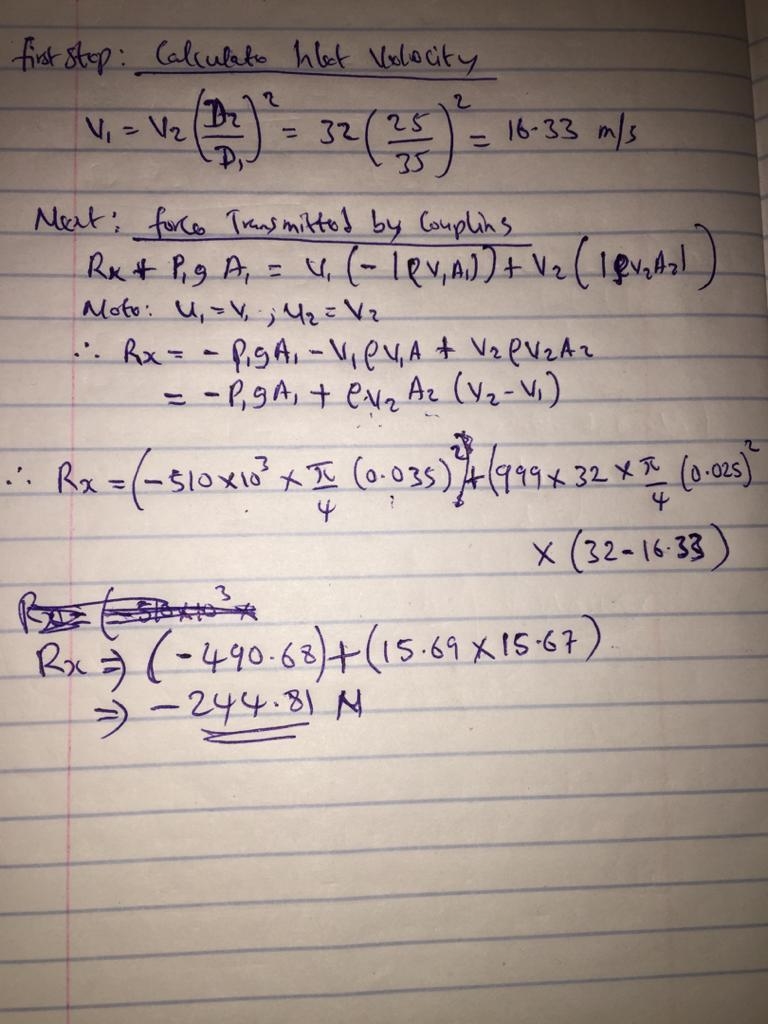 first step: Calculate Inlet Velocity
V₁ = V₂ (D₂/D₁)² = 32 (25/35)² = 16.33 m/s
Next: force Transmitted by Coupling
Rx + P₁g A₁ = u₁ (-|ρV₁A₁|) + V₂ (|ρV₂A₂|)
Note: u₁ = V₁ ; u₂ = V₂
∴ Rx = - P₁gA₁ - V₁ρV₁A + V₂ρV₂A₂
= - P₁gA₁ + ρV₂ A₂ (V₂-V₁)
∴ Rx = (-510×10³ × π/4 (0.035)²) + (999 × 32 × π/4 (0.025)²
× (32-16.33)
Rx ⇒ (-490.68) + (15.69 × 15.67)
⇒ -244.81 N